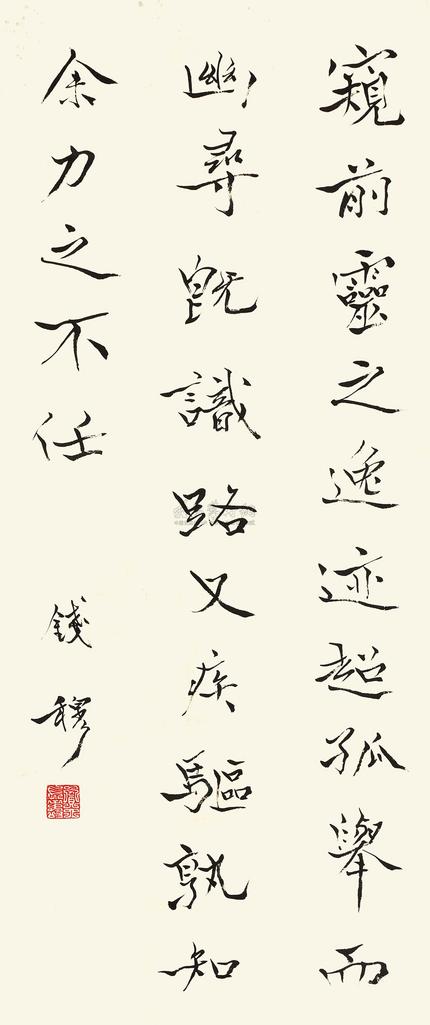 窺前靈之逸迹超孤舉而
幽尋旣識路又疾驅孰知
余力之不任
錢穆